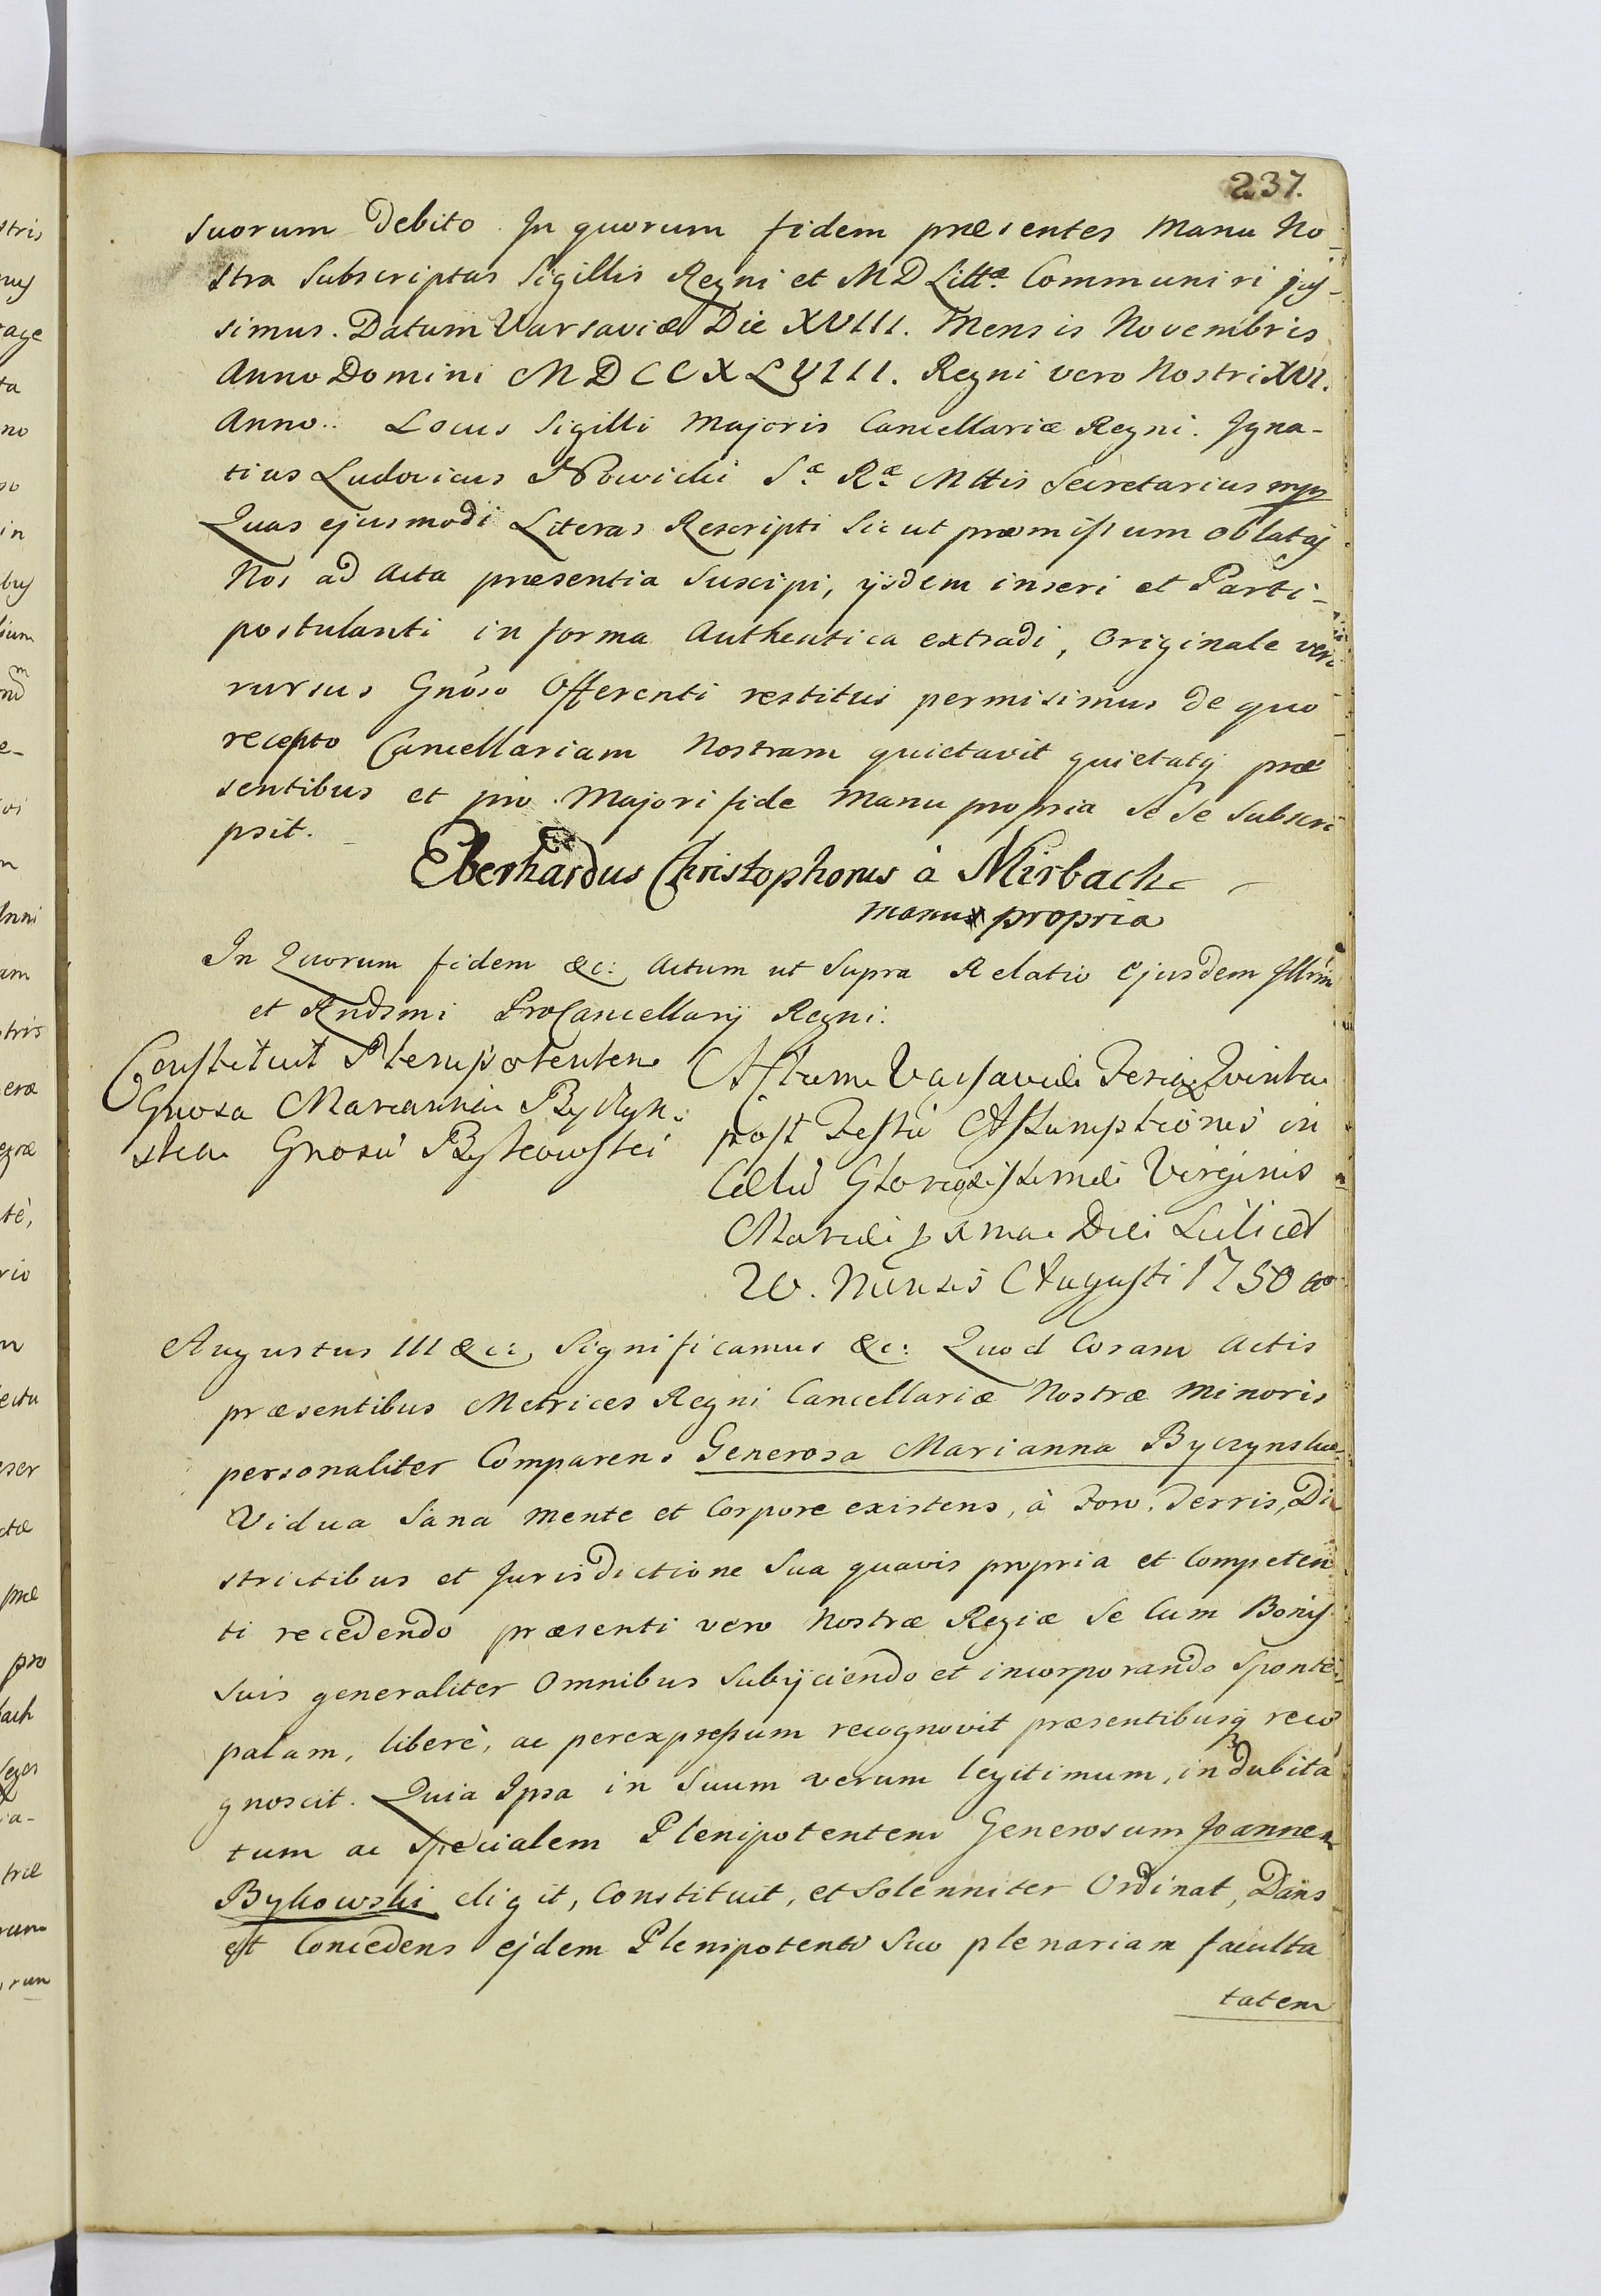 237.
suorum Debito. In quorum fidem præsentes Manu No-
stra Subscriptas Sigillis Regni et M D Littæ Communiri jus-
simus. Datum Varsaviæ Die XVIII. Mensis Novembris
Anno Domini MDCCXLVIII. Regni vero Nostri XVI.
Anno. Locus Sigilli Majoris Cancellariæ Regni. Igna-
tius Ludovicus Nowicki Sæ Ræ Mttis Secretarius mp
Quas ejusmodi Literas Rescripti Sicut præmissum oblatas
Nos ad Acta præsentia Suscipi, ijsdem inseri et Parti-
postulanti in forma Authentica extradi, Originale vero
rursus Gnoso Offerenti restitui permisimus de quo
recepto Cancellariam Nostram quietavit quietatq præ
sentibus et pro Majori fide Manu propria Se Se Subscri
psit.
Eberhardus Christophorus à Mirbach
manu propria
In Quorum fidem &c: Actum ut Supra Relatio Ejusdem Illrmi
et Rndsmi ProCancellarij Regni.
Constituit Plenipotentem
Gnosa Marianna Byczyn-
ska Gnosu Bykowski
Actum Varsaviæ Feria Quinta
post Festu Assumptionis in
Cælu Gloriosissimæ Virginis
Mariæ pxma Die Scilicet
20. Mensis Augusti 1750 ao
Augustus III &c: Significamus &c: Quod Coram Actis
præsentibus Metrices Regni Cancellariæ Nostræ Minoris
personaliter Comparens Generosa Marianna Byczynska
Vidua Sana mente et Corpore existens, à Foro, Terris, Di
strictibus et Jurisdictione Sua quavis propria et Competen
ti recedendo præsenti vero Nostræ Regiæ Se Cum Bonis
suis generaliter Omnibus Subijciendo et incorporando Sponte
palam, liberè, ac perexpressum recognovit præsentibusq reco
gnoscit. Quia Ipsa in Suum verum legitimum, indubita
tum ac Specialem Plenipotentem Generosum Joannem
Bykowski eligit, Constituit, et Solenniter Ordinat, Dans
et Concedens ejdem Plenipotenti Suo plenariam faculta
tatem